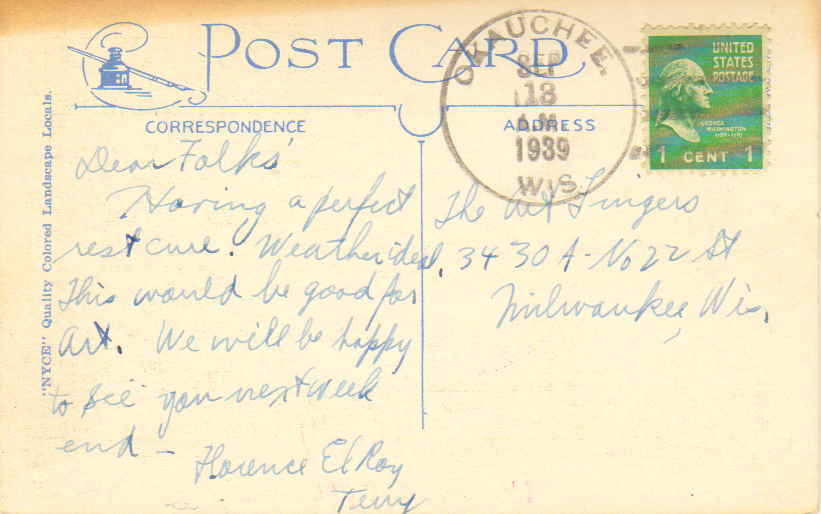 POST CARD
CORRESPONDENCE
ADDRESS
"NYCE" Quality Colored Landscape Locals.
OKAUCHEE.
SEP
13
A.M.
1939
WIS.
UNITED
STATES
POSTAGE
GEORGE
WASHINGTON
1 CENT 1
Dear Folks'
Having a perfect
rest cure. Weather ideal.
This would be good for
Art. We will be happy
to see you next week
end –
Florence El Roy
Terry
The Art Lingers
3430 A - No 22 St
Milwaukee, Wis.